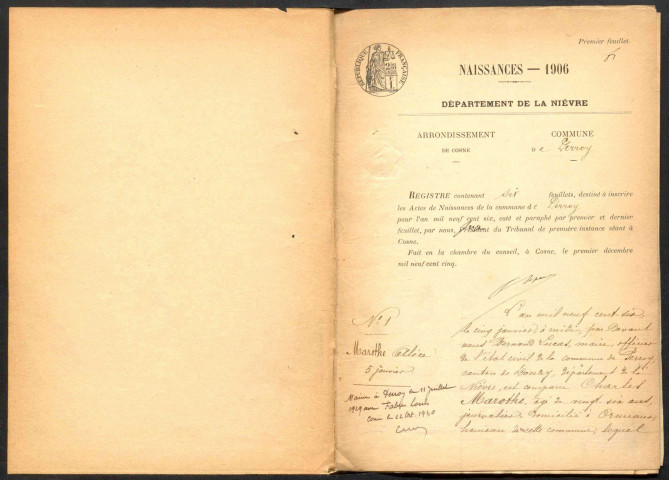 Premier feuillet.
RÉPUBLIQUE FRANÇAISE
NAISSANCES — 1906
DÉPARTEMENT DE LA NIÈVRE
ARRONDISSEMENT
DE COSNE
COMMUNE
de Perroy
REGISTRE contenant six feuillets, destiné à inscrire
les Actes de Naissances de la commune de Perroy
pour l'an mil neuf cent six, coté et paraphé par premier et dernier
feuillet, par nous, Président du Tribunal de première instance séant à
Cosne.
Fait en la chambre du conseil, à Cosne, le premier décembre
mil neuf cent cinq.
N° 1
Marothe
5 janvier
Mariée à Perroy le 11 juillet
1929 avec Louis
L'an mil neuf cent six
le cinq janvier à midi, par devant
nous Fernand Lucas, maire, officier
de l'état civil de la commune de Perroy,
canton de Donzy, département de la
Nièvre, est comparu Charles
Marothe, âgé de vingt six ans,
journalier, domicilié à Ormeaux,
hameau de cette commune, lequel